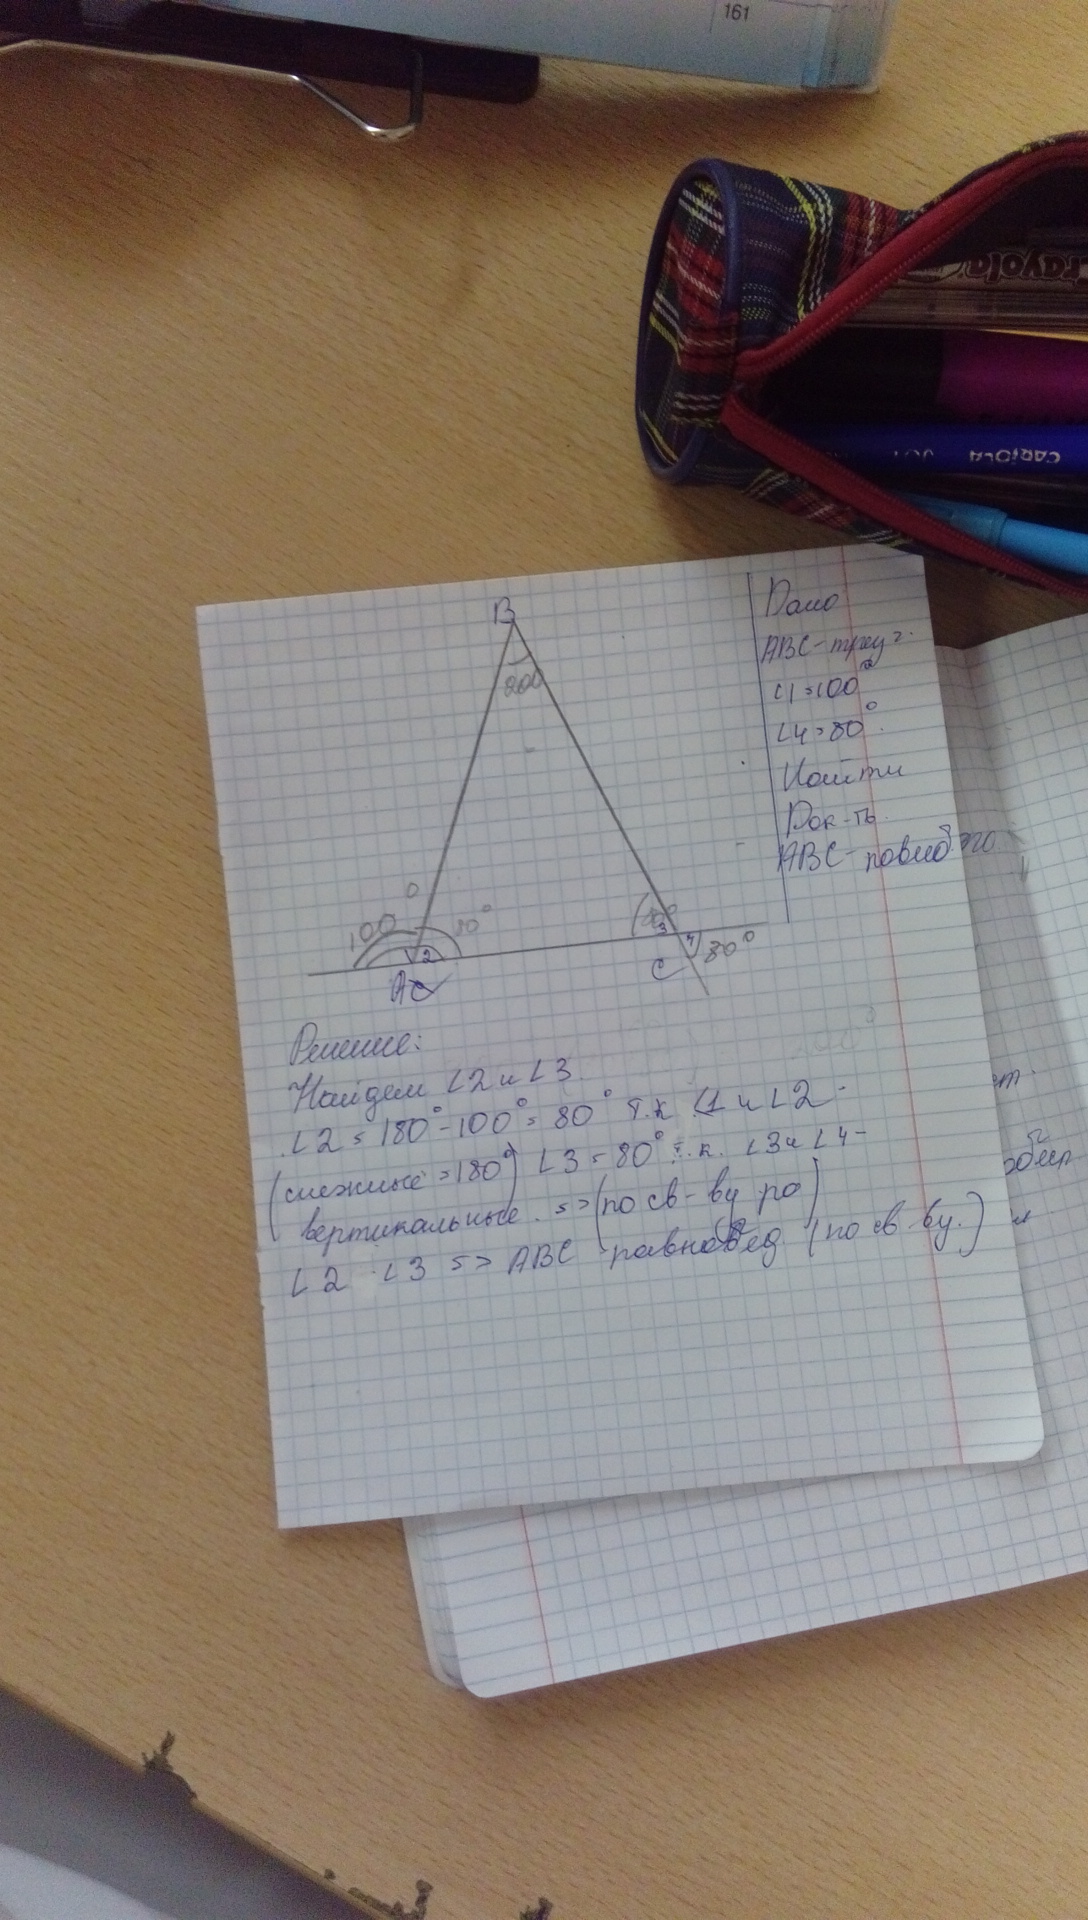 161
Crayola
CARIOLA
JOY
B
200
0
100
80°
2
A
80°
3
4
80°
C
Дано
ABC-треуг.
∠1=100°
∠4=80°.
Найти
Док-ть.
ABC-равноб.
Решение:
Найдем ∠2 и ∠3.
∠2 = 180°-100°= 80° т.к ∠1 и ∠2 -
(смежные =180°) ∠3 = 80° т.к. ∠3 и ∠4-
вертикальные. => (по св-ву ро)
∠2 ∠3 => ABC (по св-ву.)